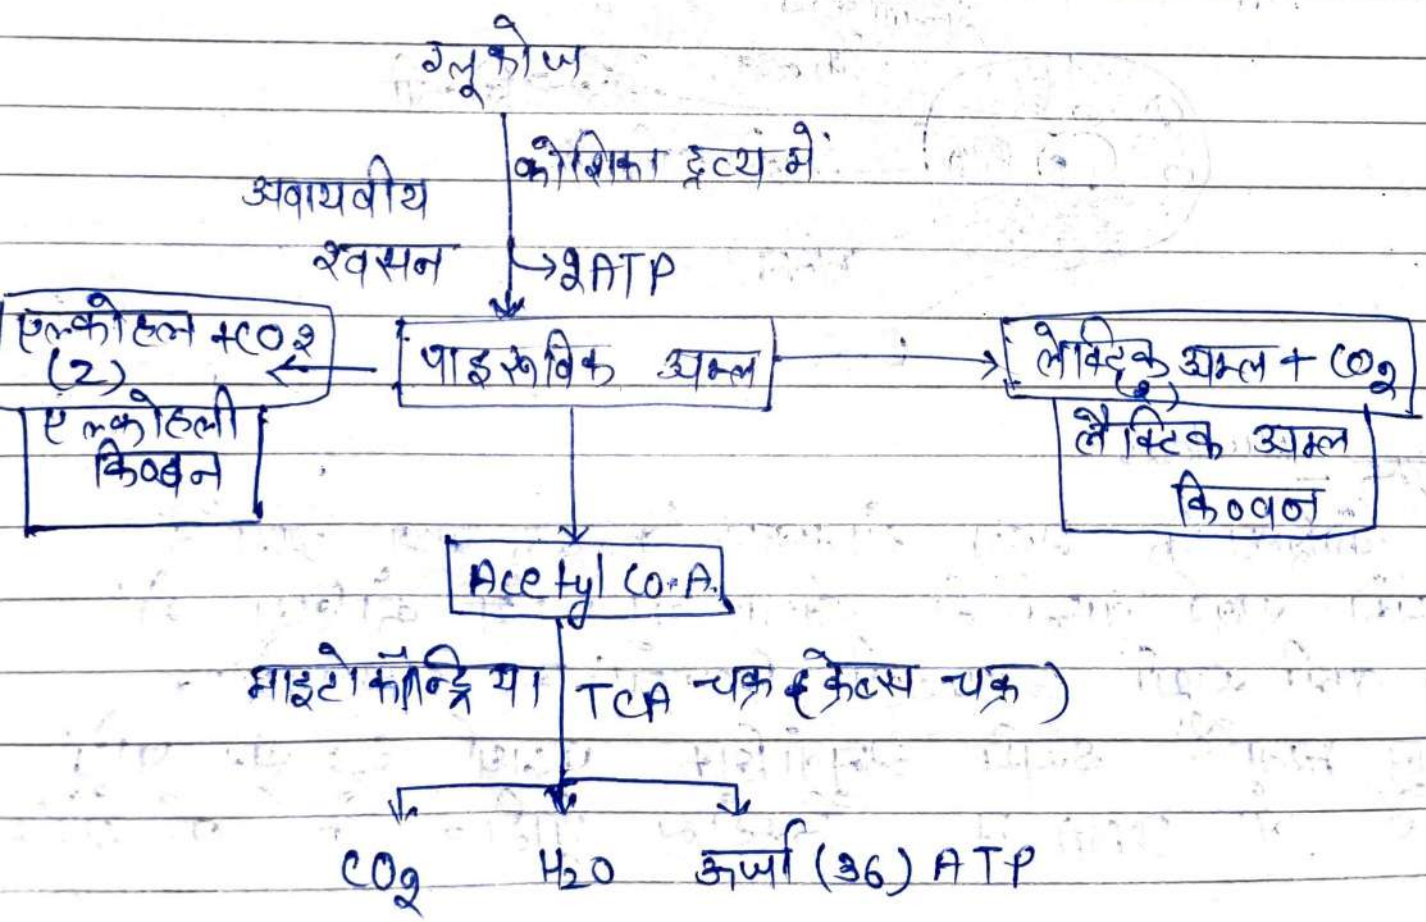 ग्लूकोज
कोशिका द्रव्य में
अवायवीय
श्वसन
→2ATP
एल्कोहल + CO2
(2)
पाइरूविक अम्ल
लेक्टिक अम्ल + CO2
(2)
एल्कोहली
किण्वन
लैक्टिक अम्ल
किण्वन
Acetyl Co.A.
माइटोकॉन्ड्रिया
TCA चक्र (क्रेब्स चक्र)
CO2 H2O ऊर्जा (36) ATP